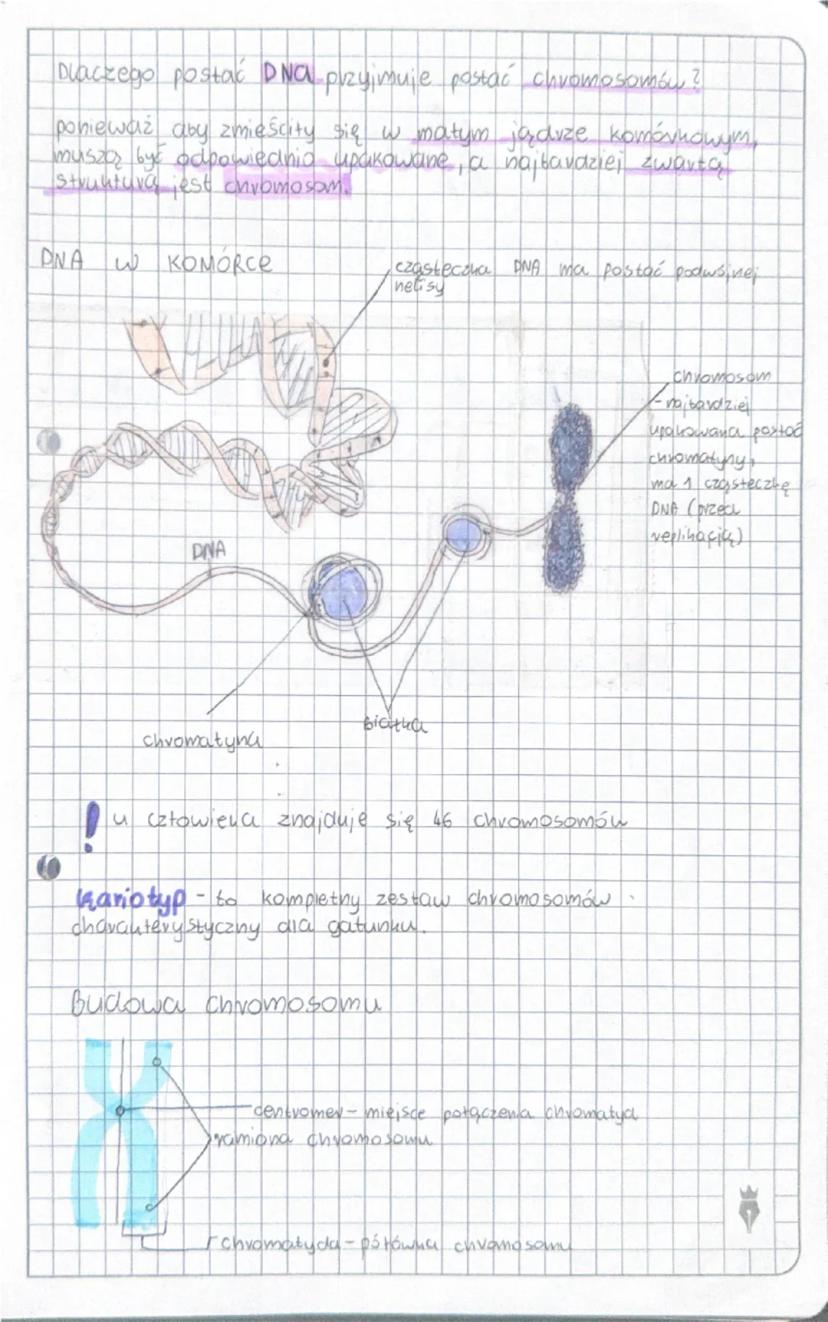 Dlaczego postać DNA przyjmuje postać chromosomów?
ponieważ aby zmieściły się w małym jądrze komórkowym,
muszą być odpowiednio upakowane, a najbardziej zwartą
strukturą jest chromosom.
DNA W KOMÓRCE
cząsteczka DNA ma postać podwójnej
helisy
chromosom
-najbardziej
upakowana postać
chromatyny,
ma 1 cząsteczkę
DNA (przed
replikacją)
DNA
białka
chromatyna
! u człowieka znajduje się 46 chromosomów
kariotyp - to kompletny zestaw chromosomów
charakterystyczny dla gatunku.
Budowa chromosomu
centromer - miejsce połączenia chromatyd
ramiona chromosomu
chromatyda - połówka chromosomu